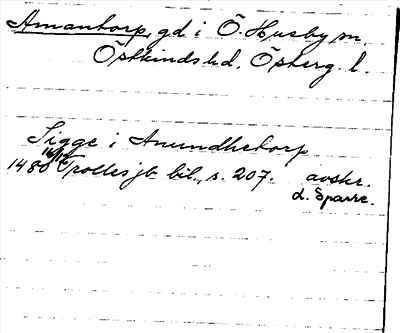 Amantorp, gd i Ö. Husby sn.
Östkinds hd, Österg. l.
Sigge i Amundhetorp
16/12
1480 Trolles jb bil., s. 207. avskr.
L. Sparre.